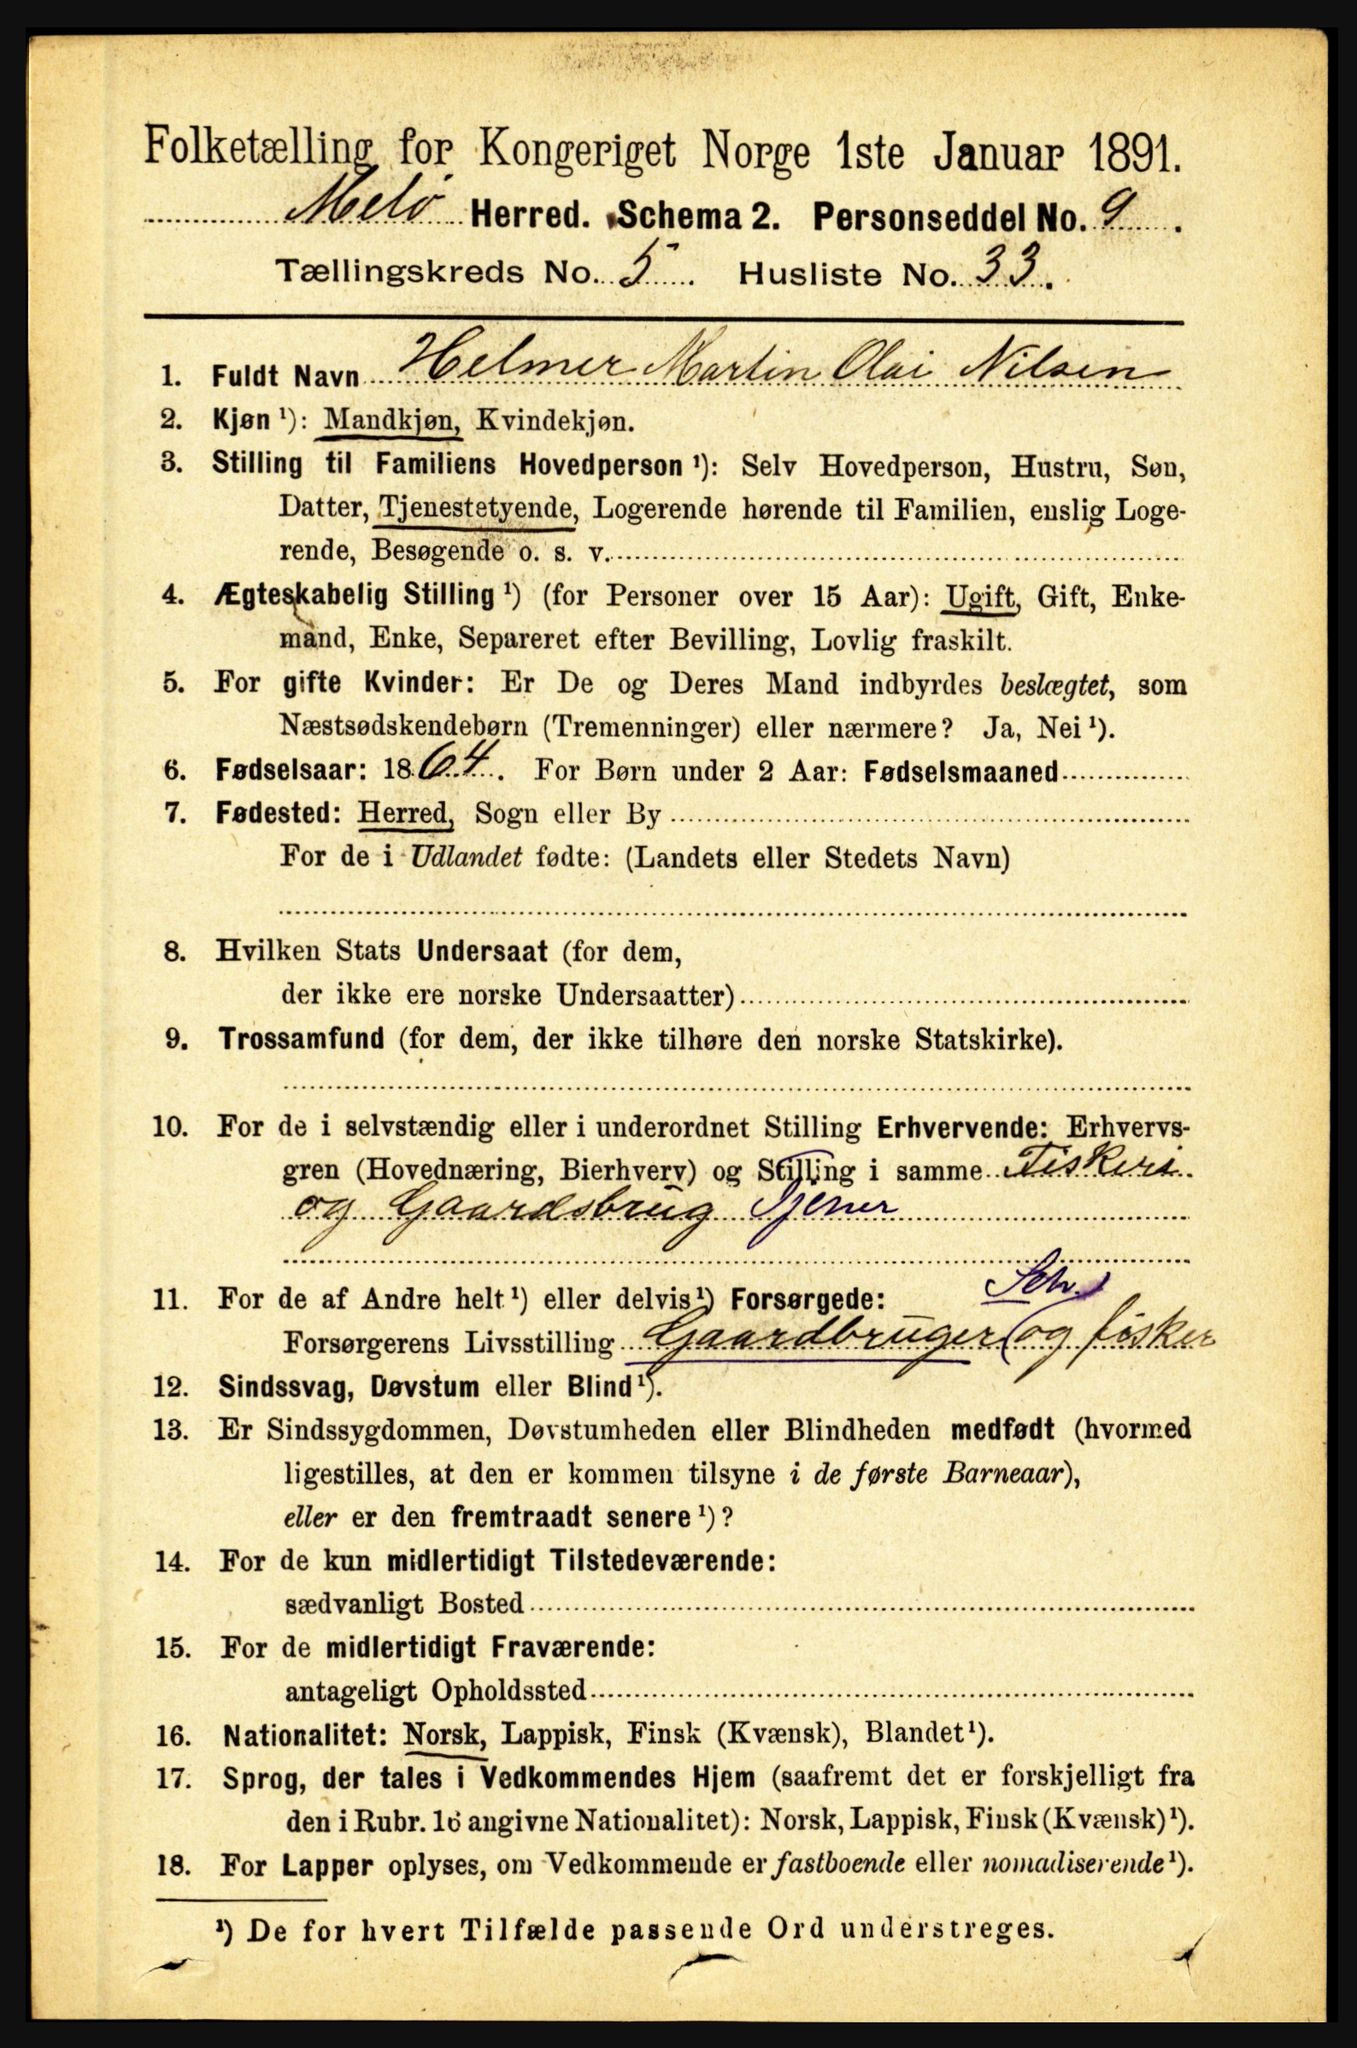 Folketælling for Kongeriget Norge 1ste Januar 1891.
Melø Herred. Schema 2. Personseddel No. 9.
Tællingskreds No. 5. Husliste No. 33.
1. Fuldt Navn Helmer Martin Olai Nilsen
2. Kjøn ¹): Mandkjøn, Kvindekjøn.
3. Stilling til Familiens Hovedperson ¹): Selv Hovedperson, Hustru, Søn,
Datter, Tjenestetyende, Logerende hørende til Familien, enslig Loge-
rende, Besøgende o. s. v.
4. Ægteskabelig Stilling ¹) (for Personer over 15 Aar): Ugift, Gift, Enke-
mand, Enke, Separeret efter Bevilling, Lovlig fraskilt.
5. For gifte Kvinder: Er De og Deres Mand indbyrdes beslægtet, som
Næstsødskendebørn (Tremenninger) eller nærmere? Ja, Nei ¹).
6. Fødselsaar: 1864. For Børn under 2 Aar: Fødselsmaaned
7. Fødested: Herred, Sogn eller By
For de i Udlandet fødte: (Landets eller Stedets Navn)
8. Hvilken Stats Undersaat (for dem,
der ikke ere norske Undersaatter)
9. Trossamfund (for dem, der ikke tilhøre den norske Statskirke).
10. For de i selvstændig eller i underordnet Stilling Erhvervende: Erhvervs-
gren (Hovednæring, Bierhverv) og Stilling i samme Fiskeri
og Gaardsbrug Tjener
11. For de af Andre helt ¹) eller delvis ¹) Forsørgede: Selv.
Forsørgerens Livsstilling Gaardbruger (og fisker
12. Sindssvag, Døvstum eller Blind ¹).
13. Er Sindssygdommen, Døvstumheden eller Blindheden medfødt (hvormed
ligestilles, at den er kommen tilsyne i de første Barneaar),
eller er den fremtraadt senere ¹)?
14. For de kun midlertidigt Tilstedeværende:
sædvanligt Bosted
15. For de midlertidigt Fraværende:
antageligt Opholdssted
16. Nationalitet: Norsk, Lappisk, Finsk (Kvænsk), Blandet ¹).
17. Sprog, der tales i Vedkommendes Hjem (saafremt det er forskjelligt fra
den i Rubr. 16 angivne Nationalitet): Norsk, Lappisk, Finsk (Kvænsk) ¹).
18. For Lapper oplyses, om Vedkommende er fastboende eller nomadiserende ¹).
¹) De for hvert Tilfælde passende Ord understreges.